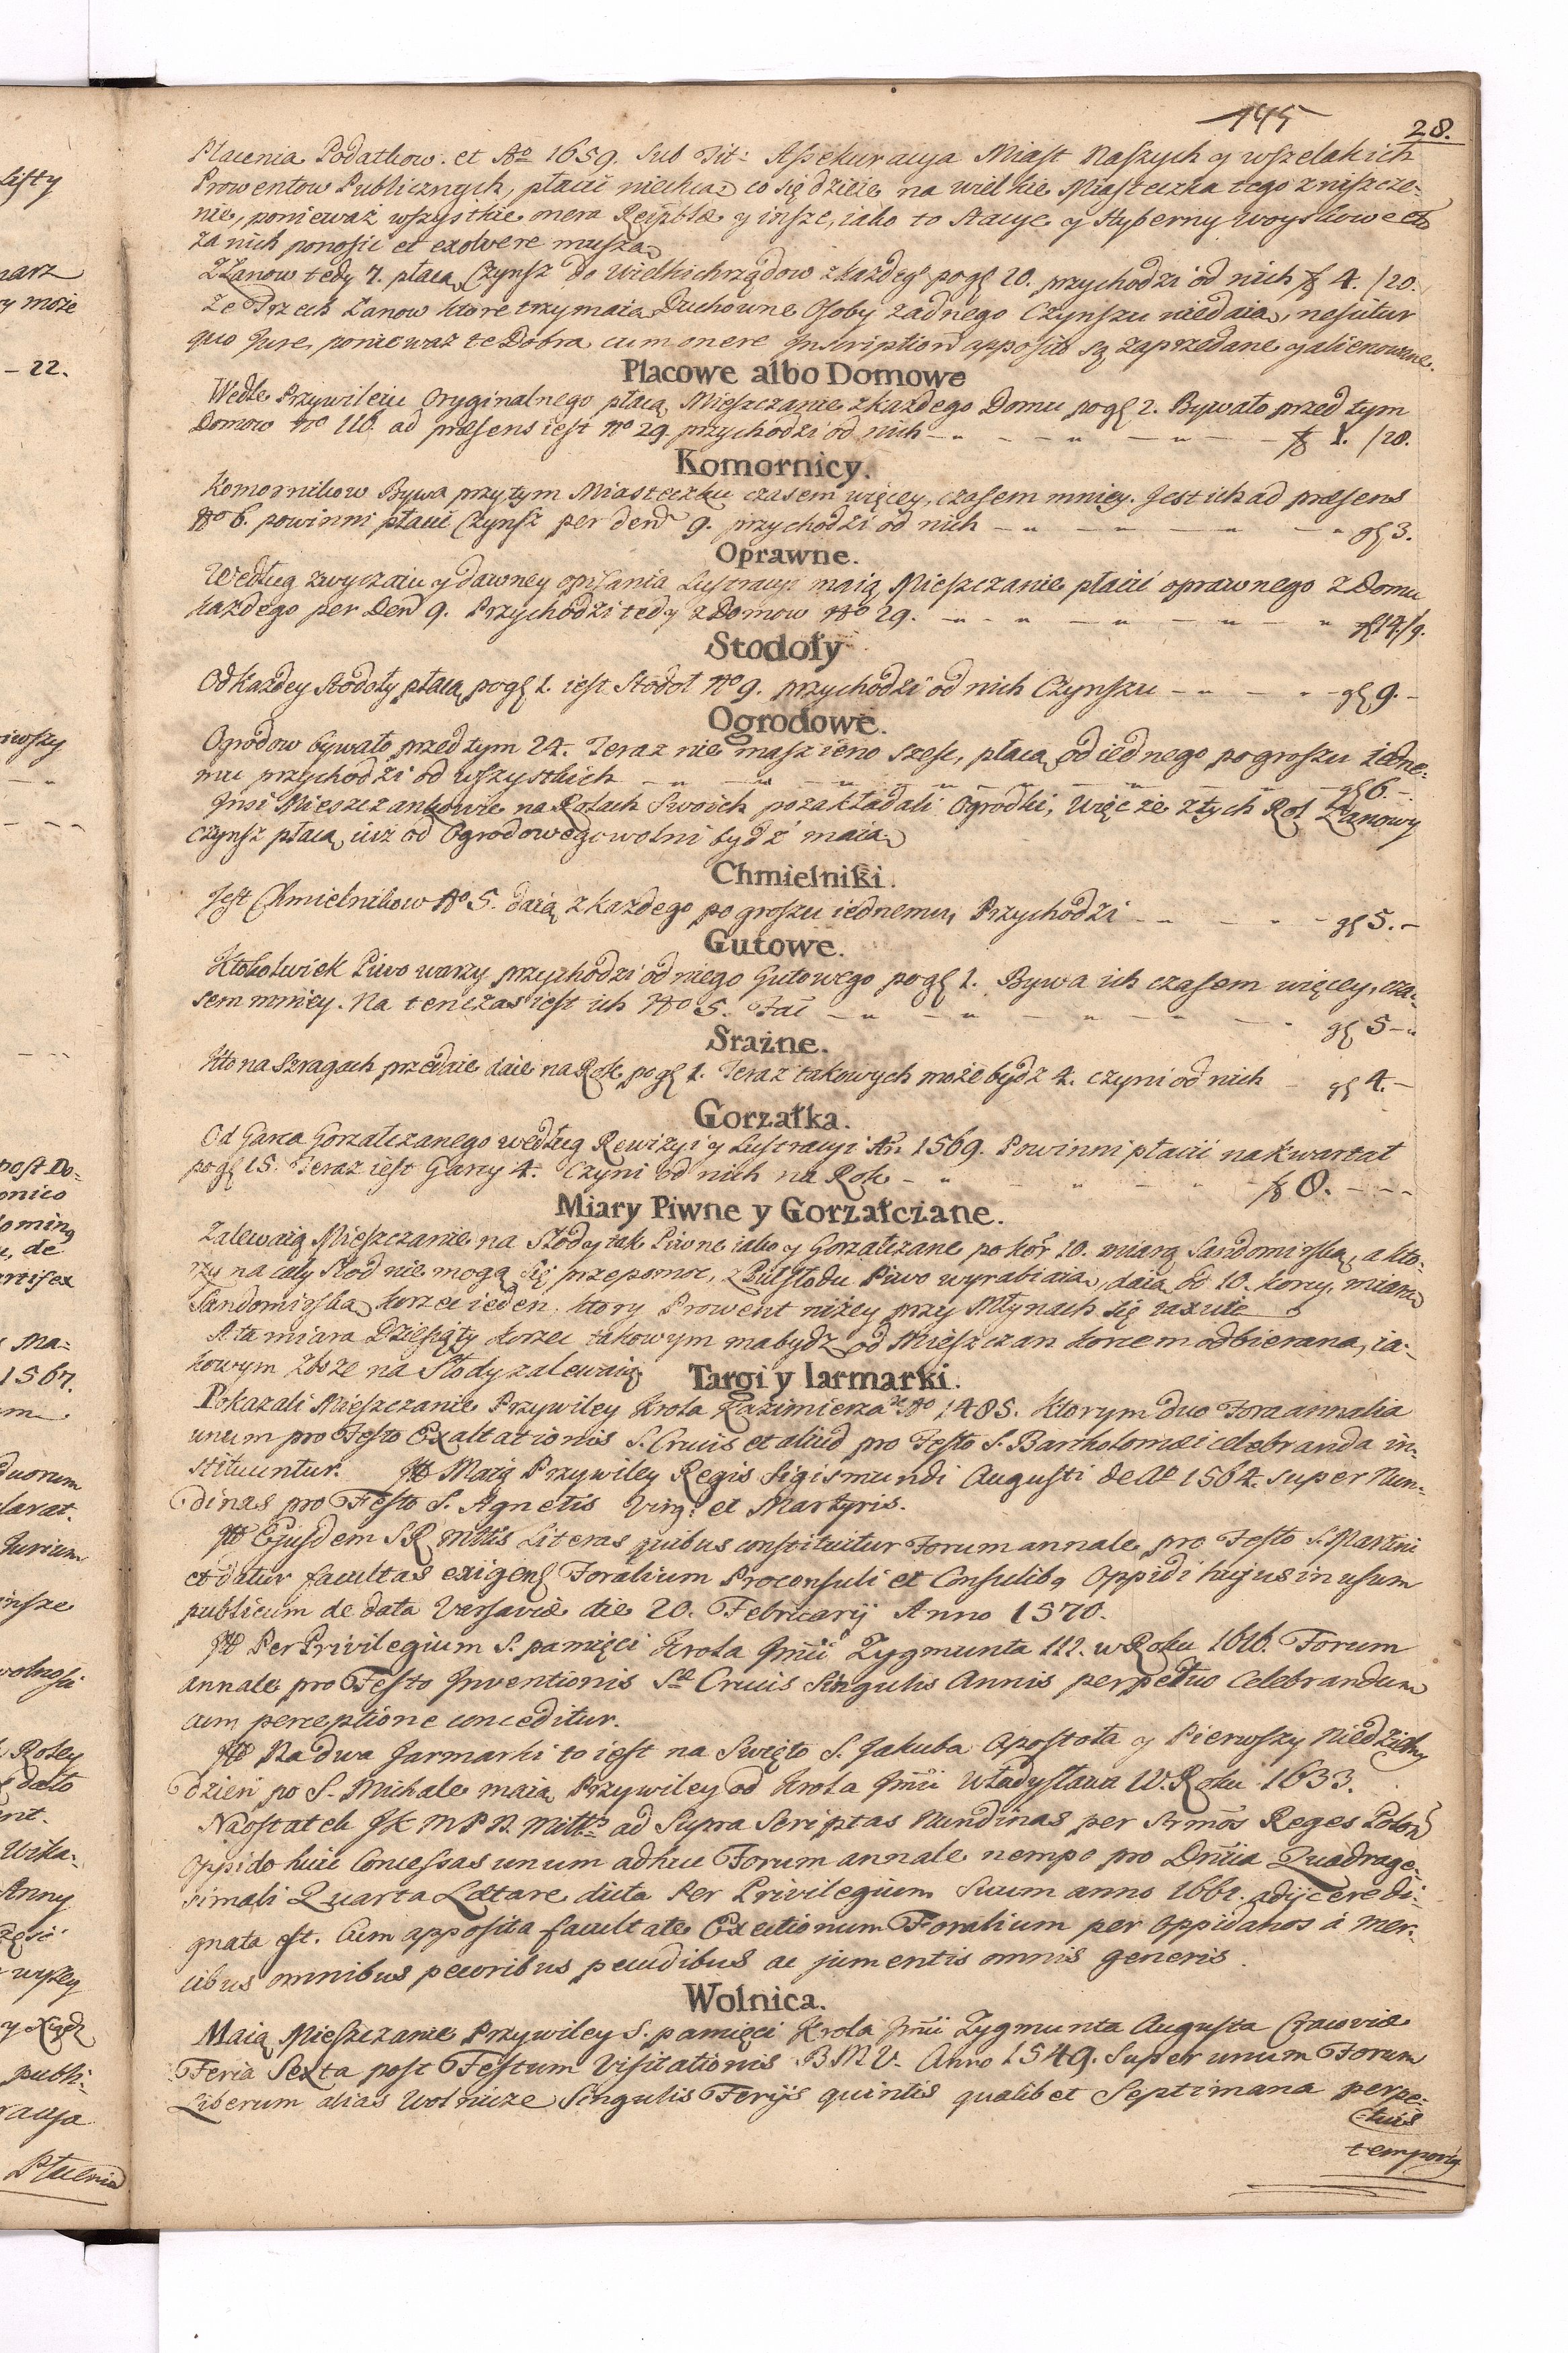 145 28.
Płacenia Podatkow. et Aº 1659. Sub Tit: Assekuracya Miast Naszych y wszelakich
Prowentow Publicznych, płacić niechcą, co się dzieie na wielkie Miasteczka tego zniszcze-
nie, ponieważ wszystkie onera Reipblæ y insze, iako to Stacye y Hyberny Woyskowe etc
za nich ponosić et exolvere muszą
Z Łanow tedy 7. płacą Czynsz do Wielkichrządow z każdegº po gſ 20. przychodzi od nich ƒ 4. /20.
Ze Trzech Łanow ktore trzymaią Duchowne Osoby żadnego Czynszu niedaią, nescitur
quo Jure, ponieważ te Dobra cum onere Inscription apposito są zaprzedane y alienowane.
Placowe albo Domowe
Wedle Przywileiu Oryginalnego płacą Mieszczanie z każdego Domu po gſ 2. Bywało przed tym
Domow Nº 116. ad præsens iest Nº 29. przychodzi od nich - ƒ 1. /28.
Komornicy.
Komornikow Bywa przy tym Miasteczku czasem więcey, czasem mniey. Jest ich ad præsens
Nº 6. powinni płacić Czynsz per den 9. przychodzi od nich - gſ 3.
Oprawne.
Według zwyczaiu y dawney opisania Lustracyi maią Mieszczanie płacić oprawnego z Domu
każdego per Den 9. Przychodzi tedy z Domow Nº 29. - gſ 14./9.
Stodoły
Od Każdey Stodoły płacą po gſ 1. iest Stodoł Nº 9. przychodzi od nich Czynszu - gſ 9.-
Ogrodowe.
Ogrodow bywało przed tym 24. Teraz nie masz ieno sześć, płacą od iednego po groszu iedne-
mu przychodzi od wszystkich - gſ 6.-
Insi Mieszczankowie na Rolach Swoich pozakładali Ogrodki, Więc że z tych Rol Łanowy
czynsz płacą, iuż od Ogrodowego wolni bydź maią
Chmielniki.
Jest Chmielnikow Nº 5. daią z każdego po groszu iednemu, Przychodzi - gſ 5.-
Gutowe.
Ktokolwiek Piwo warzy przychodzi od niego Gutowego po gſ 1. Bywa ich czasem więcey, cza-
sem mniey. Na tenczas iest ich Nº 5. Faċ - gſ 5-
Srażne.
Kto na Szragach przedaie daie na Rok po gſ 1. Teraz takowych może bydź 4. czyni od nich - gſ 4.-
Gorzałka.
Od Garca Gorzałczanego według Rewizyi y Lustracyi An 1569. Powinni płacić na kwartał
po gſ 15. Teraz iest Garcy 4. Czyni od nich na Rok - ƒ 8. - - -
Miary Piwne y Gorzałczane.
Zalewaią Mieszczanie na Słody tak Piwne iako y Gorzałczane po kor 10. miarą Sandomirską, a kto-
rzy na cały Słod nie mogą się przepomoc, z Puł Słodu Piwo wyrabiaią, daią od 10. korcy, miarą
Sandomirską korzec ieden. ktory Prowent niżey przy Młynach się taxuie
A ta miara Dziesiąty korzec takowym ma bydź od Mieszczan korcem odbierana, ia-
kowym zboże na Słody zalewaią
Targi y Iarmarki.
Pokazali Mieszczanie Przywiley Krola Kazimierza de Aº 1485. Ktorym duo Fora annalia
unum pro Festo Exaltationis S. Crucis et aliud pro Festo S. Bartholomæi celebranda in-
stituuntur. Itt Maią Przywiley Regis Sigismundi Augusti de Aº 1564. super Nun-
dinas pro Festo S. Agnetis Virg: et Martyris.
Itt Ejusdem SR Mttis Literas quibus constituitur Forum annale pro Festo S. Martini
et datur facultas exigenẟ Foralium Proconsuli et Consulibq Oppidi hujus in usum
publicum de data Varsaviæ die 20. Februarij Anno 1570.
Itt Per Privilegium S. pamięci Krola Jmci Zygmunta III. w Roku 1616. Forum
annale pro Festo Inventionis Stæ Crucis Singulis Annis perpetuo celebrandum
cum perceptione conceditur.
Itt Na dwa Jarmarki to iest na Swięto S. Jakuba Apostoła y Pierwszy Niedzielny
dzień po S. Michale maią Przywiley od Krola Jmci Władysława IV. Roku 1633.
Naostatek JK M P N. Mttis ad Supra Scriptas Nundinas per Srmos Reges Polon
Oppido huic Concessas unum adhuc Forum annale nempe pro Dnica Quadrage-
simali Quarta Lætare dicta Per Privilegium Suum anno 1661. adijcere di-
gnata est. Cum apposita facultate Exactionum Foralium per Oppidanos à mer-
cibus omnibus pecoribus pecudibus ac jumentis omnis generis.
Wolnica.
Maią Mieszczanie Przywiley S. pamięci Krola Jmci Zygmunta Augusta Cracoviæ
Feria Sexta post Festum Visitationis B M V. Anno 1549. Super unum Forum
Liberum alias Wolnicze Singulis Ferijs quintis qualibet Septimana perpe-
tuis
temporiq